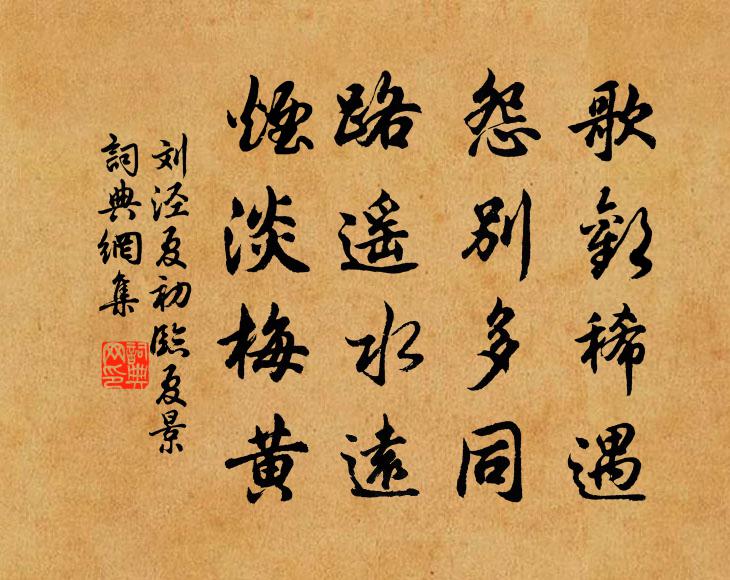 歌歡稀遇
怨別多同
路遥水遠
煙淡梅黄
刘泾夏初臨夏景
詞典網集
詞典网印